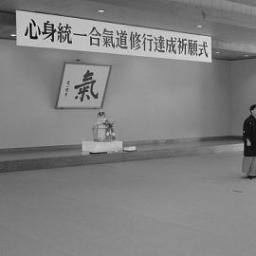 心身統一合氣道修行達成祈願式
氣